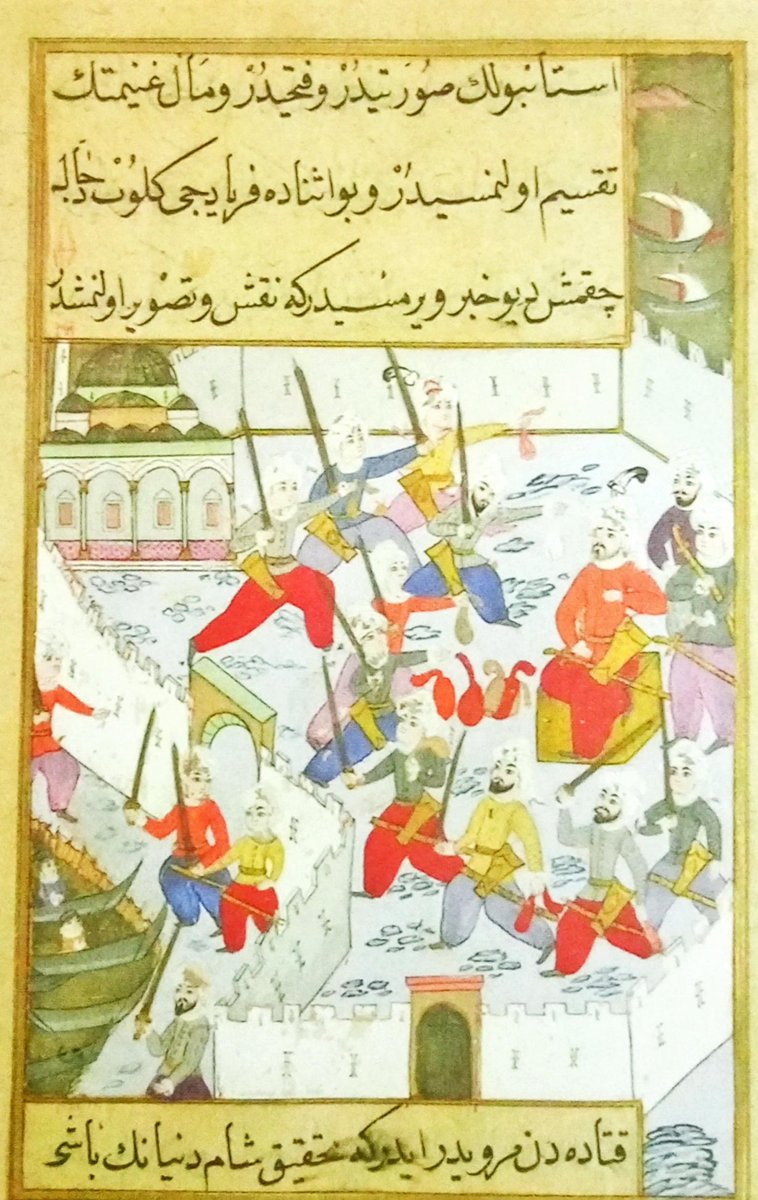 استانبولك صُورَتيدُرْ وفتحيدُرْ ومَالِ غنيمتك
تقسيم اولنمسيدُرْ وبو اثناده فريادجى كلوُبْ دجّاله
چقمش ديو خبر ويرمسيدركه نقش وتصْوير اولنمشدُر
قتاده دن مرويدر ايدركه تحقيق شام دنيانك باشى